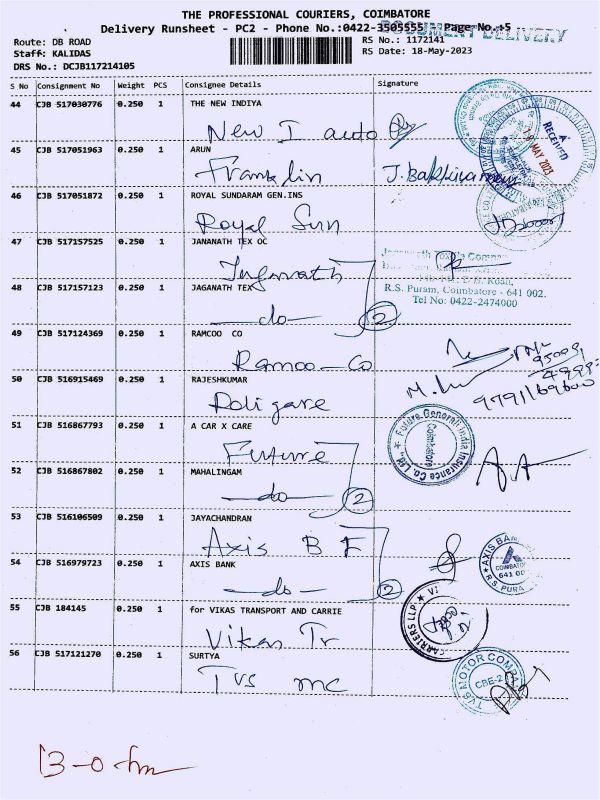 THE PROFESSIONAL COURIERS, COIMBATORE
DOCUMENT DELIVERY
Delivery Runsheet - PC2 - Phone No.:0422-3505555 Page No.:5
Route: DB ROAD RS No.: 1172141
Staff: KALIDAS RS Date: 18-May-2023
DRS No.: DCJB117214105
S No Consignment No Weight PCS Consignee Details Signature
44 CJB 517030776 0.250 1 THE NEW INDIYA
New I auto
RECEIVED
MAY 2023
45 CJB 517051963 0.250 1 ARUN
Franklin
46 CJB 517051872 0.250 1 ROYAL SUNDARAM GEN.INS
Royal Sun
47 CJB 517157525 0.250 1 JANANATH TEX OC
Jaganath
48 CJB 517157123 0.250 1 JAGANATH TEX
R.S. Puram, Coimbatore - 641 002.
Tel No: 0422-2474000
-do- 2
49 CJB 517124369 0.250 1 RAMCOO CO
Ramoo-Co
50 CJB 516915469 0.250 1 RAJESHKUMAR
Religare
9791169600
51 CJB 516867793 0.250 1 A CAR X CARE
Future
Future Generali India Insurance Co. Ltd.,
Coimbatore
52 CJB 516867802 0.250 1 MAHALINGAM
-do- 2
53 CJB 516106509 0.250 1 JAYACHANDRAN
Axis B F
54 CJB 516979723 0.250 1 AXIS BANK
-do- 2
AXIS BANK
R.S. PURA
55 CJB 184145 0.250 1 for VIKAS TRANSPORT AND CARRIE
Vikas Tr
CARRIERS LLP
56 CJB 517121270 0.250 1 SURTYA
TVS mc
TVS MOTOR COMPA
CBE-2